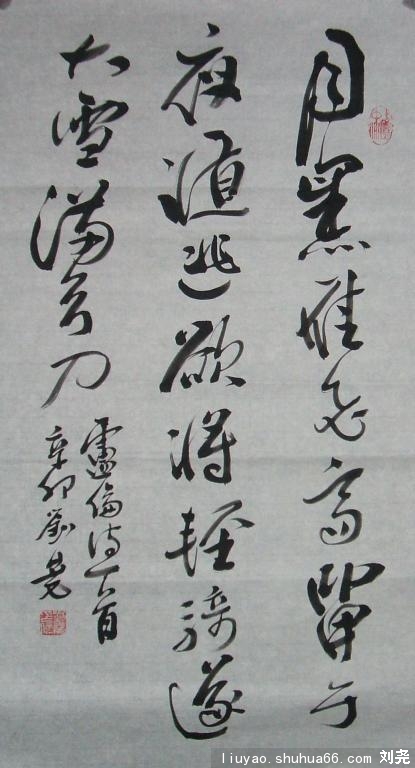 月黑雁飞高單于
夜遁逃欲将輕骑逐
大雪满弓刀
盧倫诗一首
辛卯劉尧
liuyao.shuhua66.com 刘尧